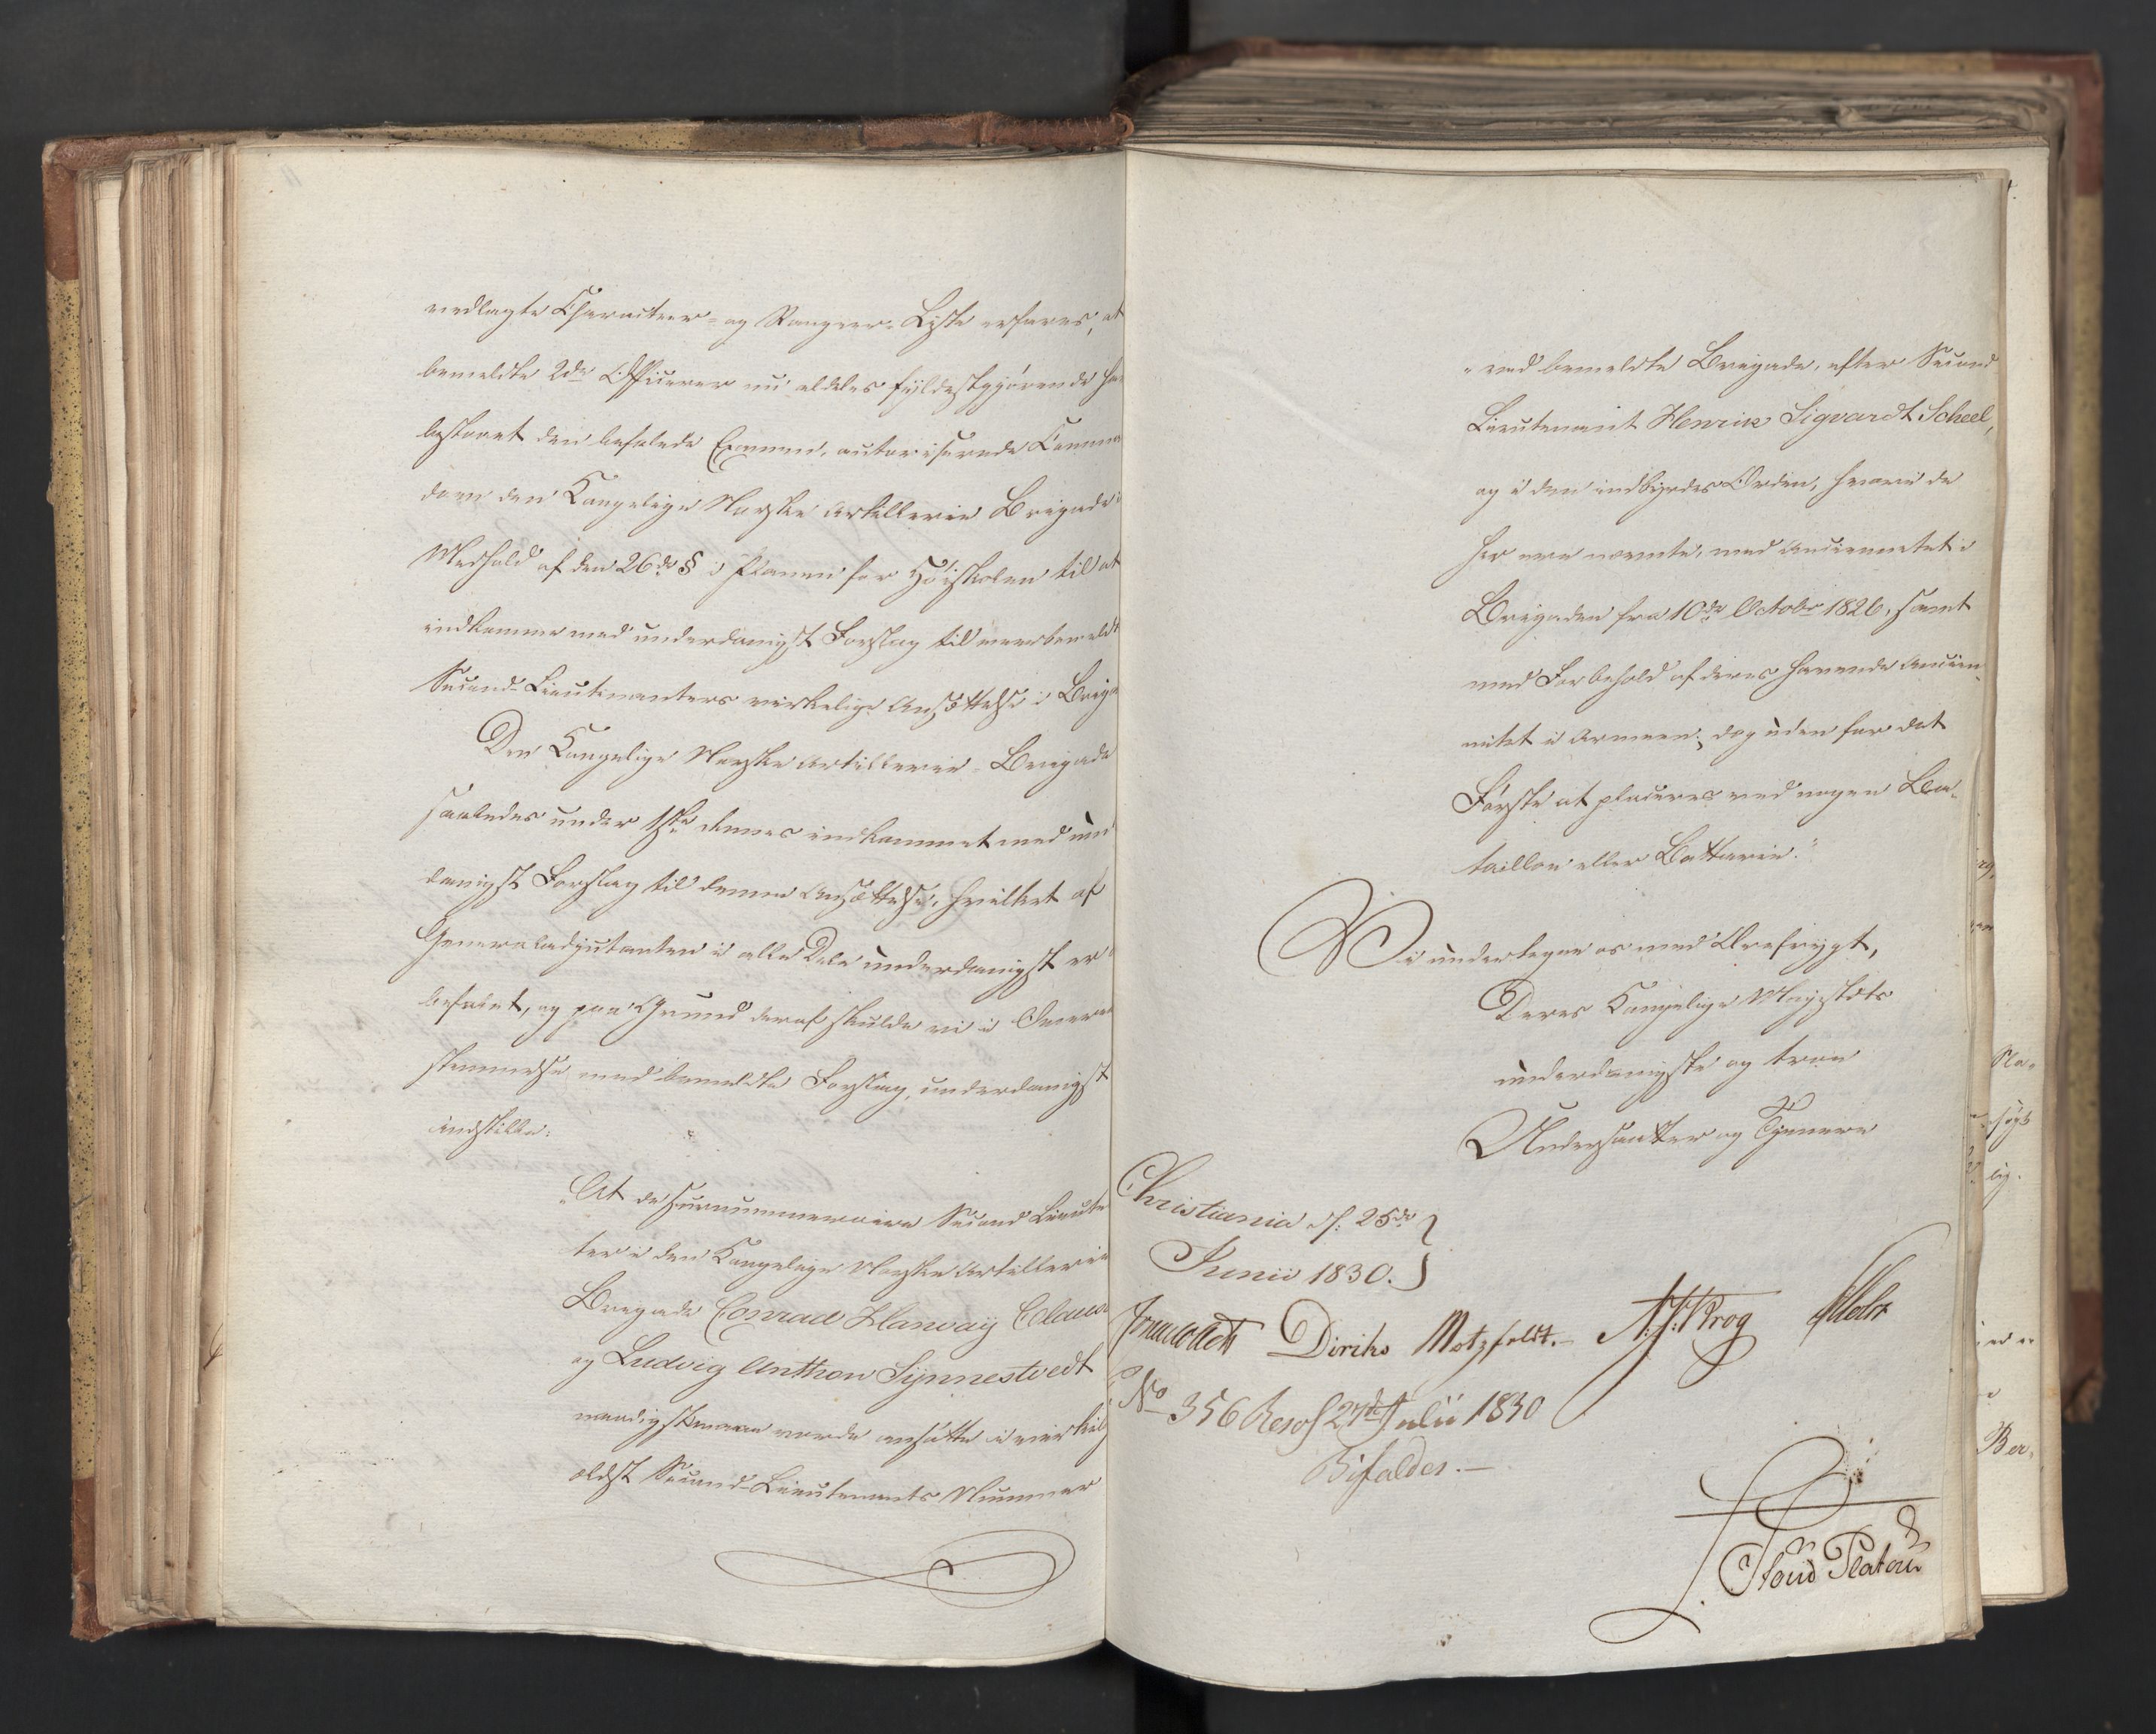 vedlagte Characteer- og Rangeer-Liste erfares, at
bemeldte 2de Officerer nu aldeles fyldestgjørende ha
bestaaet den befalede Examen, autoriserede Comman
doen den Kongelige Norske Artillerie Brigade i
Medhold af den 26de § i Planen for Høiskolen til at
indkomme med underdanigst Forslag til meerbemeldt
Second-Lieutenanters virkelige Ansættelse i Briga
Den Kongelige Norske Artillerie-Brigade
saaledes under 1ste dennes indkommet med un
danigst Forslag til denne Ansættelse, hvilket af
Generaladjutanten i alle Dele underdanigst er
befalet, og paa Grund deraf skulde vi i Overee
stemmelse med bemeldte Forslag, underdanigst
indstille:
"At de surnummeraire Second Lieute
ter i den Kongelige Norske Artillerie
Brigade Conrad Hanway Claus
og Ludvig Anthon Synnestvedt
naadigst maae vorde ansatte i virkeli
aldst Second-Lieutenants Nummer
" ved bemeldte Brigade, efter Second
Lieutenant Henrik Sigvardt Scheel,
og i den indbyrdes Orden, hvori de
her ere nævnte, med Anciennetet i
Brigaden fra 10de Octobr 1826, samt
med Forbehold af deres havende Ancien-
nitet i Armeen; dog uden for det
Første at placeres ved nogen Ba-
taillon eller Batterie."
Vi undertegne os med Ærefrygt,
Deres Kongelige Majestæts
underdanigste og troe
Undersaatter og Tjenere
Christiania d. 25de
Junii 1830.
Jonas Collett Diriks Motzfeldt. A. J. Krog
No 356 Resol 27de Julii 1830
Bifaldes. —
Stoud Platou